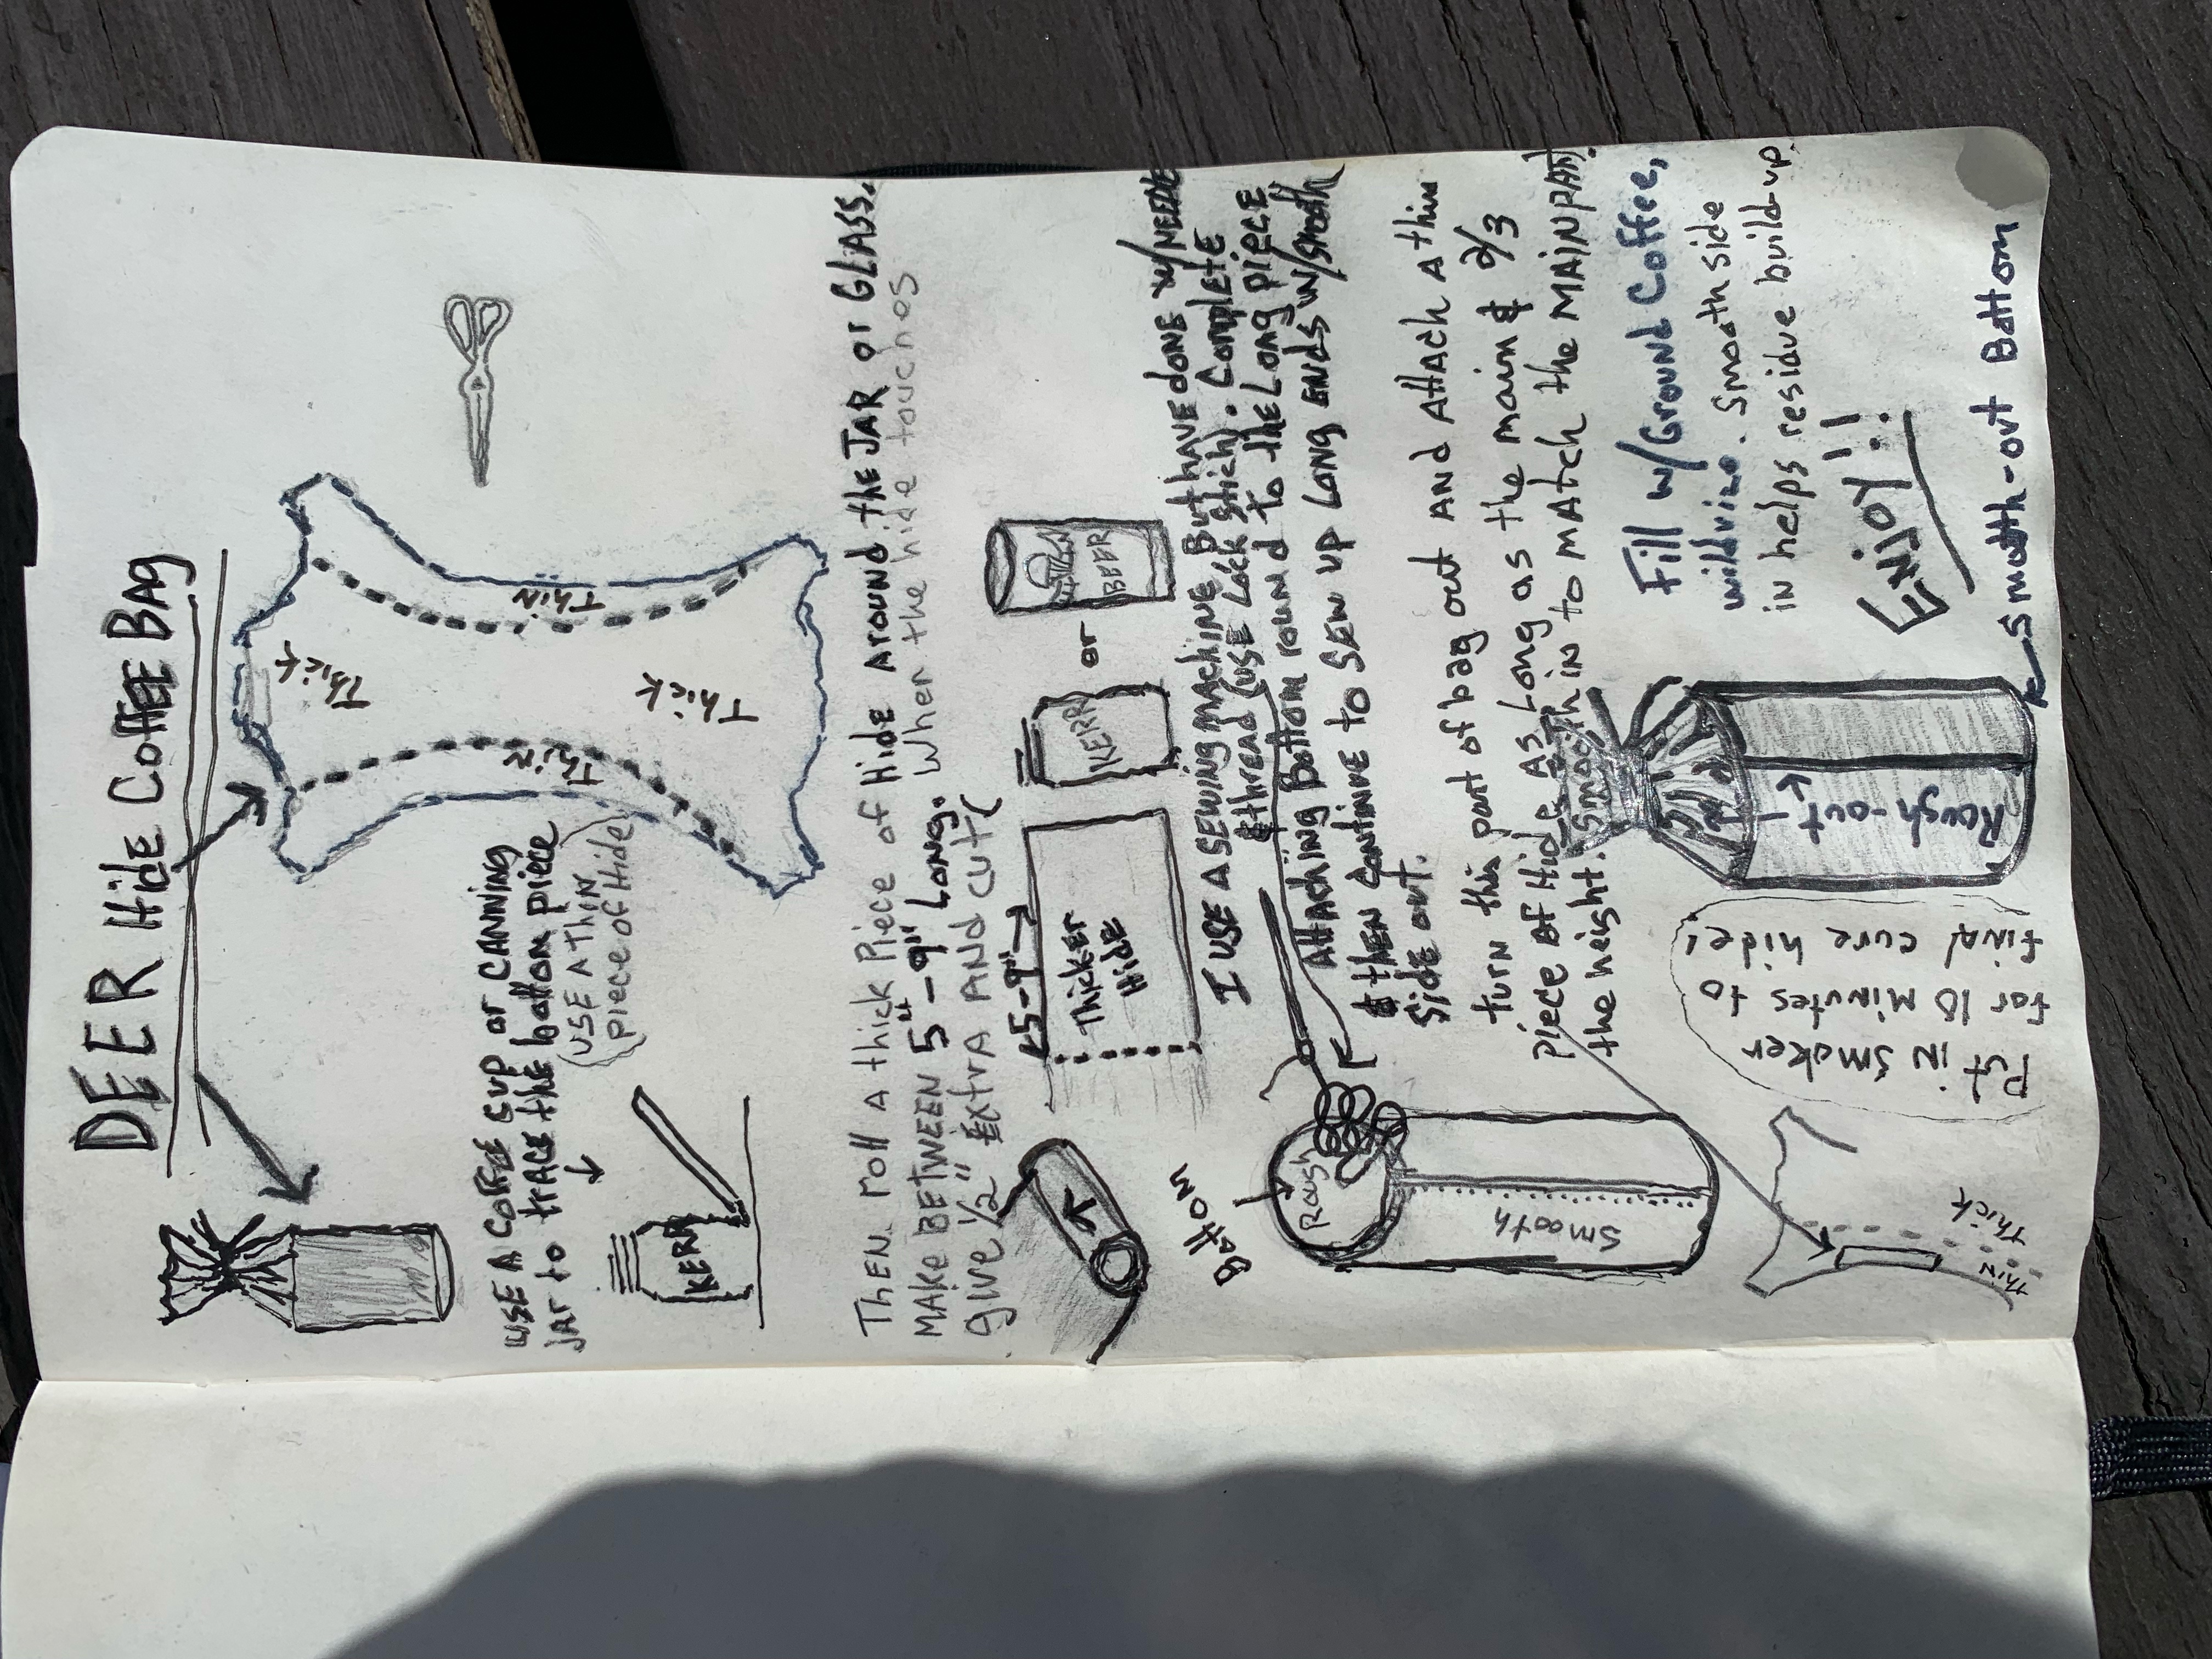 DEER Hide COFFEE BAG
USE A COFFEE CUP or CANNING
JAr to trACE the bottom piece
(USE A THIN
piece of Hide)
KERR
Thick
Thick
Thick
THIN
THIN
THEN roll A thick Piece of Hide Around the JAR or GLASS.
MAKE BETWEEN 5" - 9" LONG. When the hide touches
give 1/2" Extra AND cut (
5-9"
Thicker
Hide
KERR
or
BEER
I USE A SEWING MACHINE But HAVE done w/NEEDLE
& thread (USE Lock stich). Complete
AttAching Bottom round to the Long piece
& then Continue to SEW UP Long ENDS w/smooth
Side out.
Bottom
Rough
Smooth
turn this part of bag out AND AttAch A thin
piece of Hide AS Long as the main & 2/3
the height. Smooth in to MAtch the MAIN PArt.
Thick
THIN
Put in smoker
for 10 Minutes to
final cure hide!
Fill w/Ground Coffee,
. Smooth side
in helps residue build-up.
ENJOY!!
Rough-out
Smooth-out Bottom